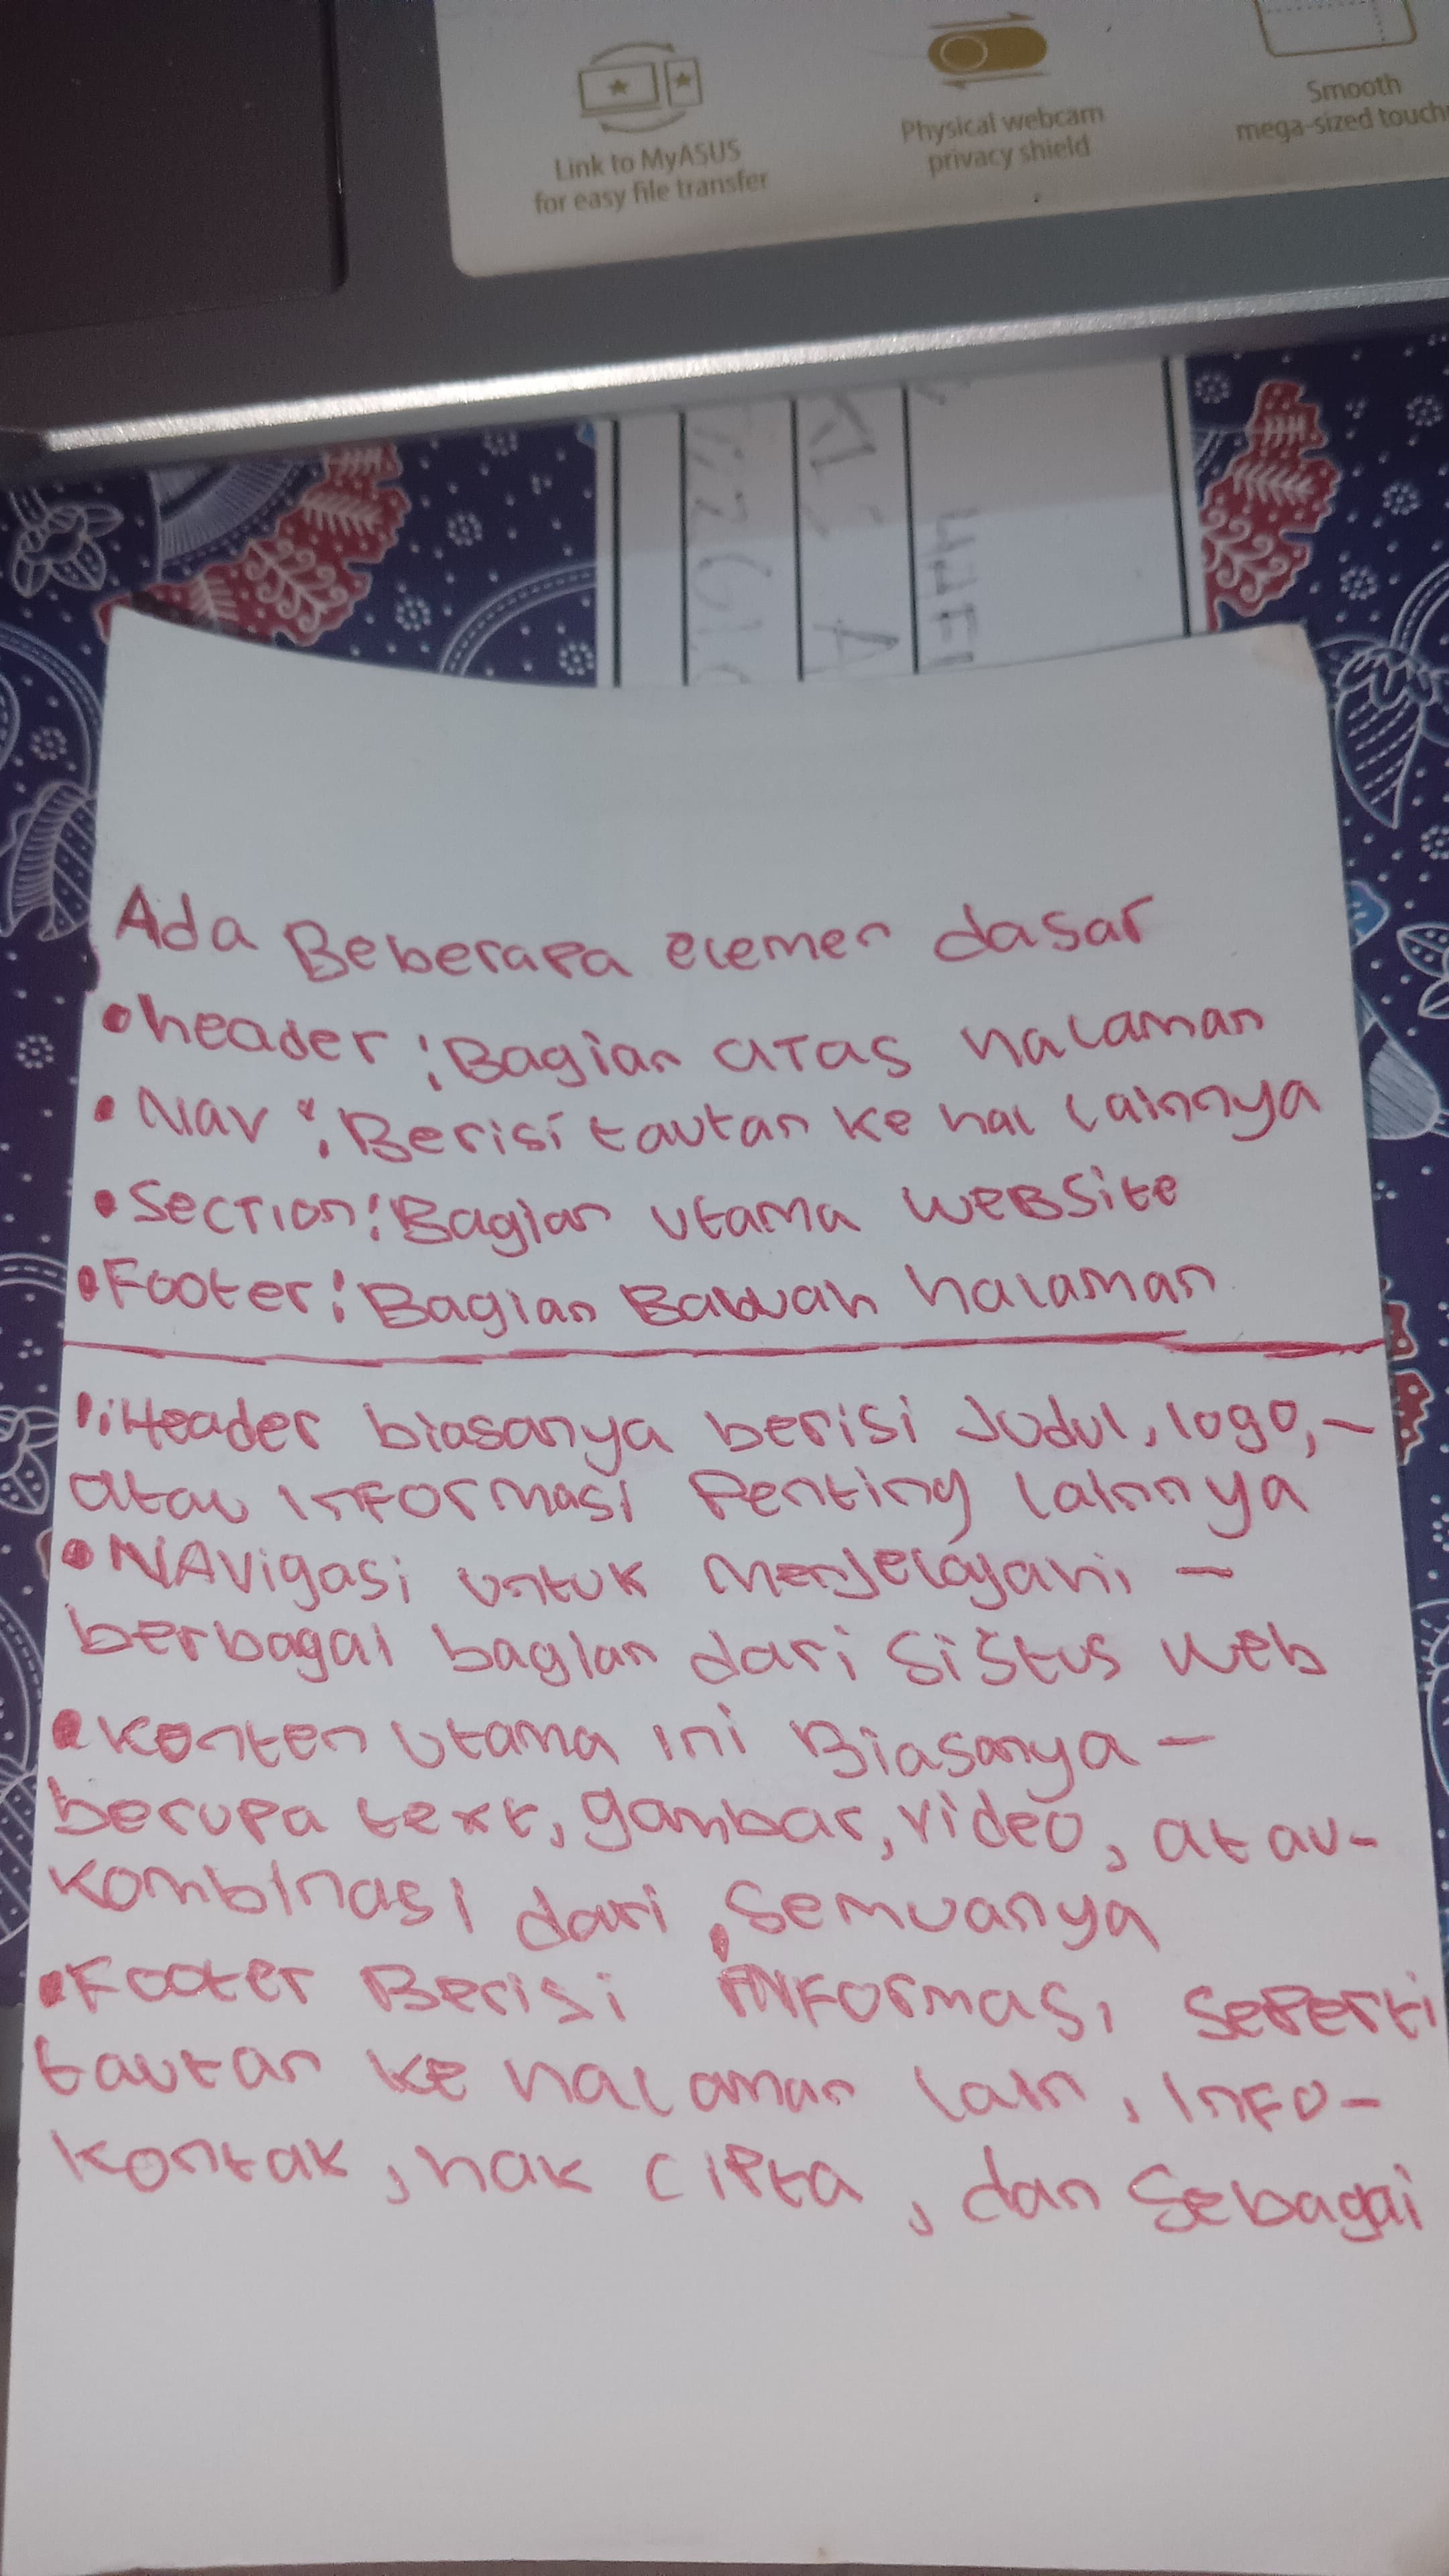 Link to MyASUS
for easy file transfer
Physical webcam
privacy shield
Smooth
mega-sized touch
Ada Beberapa elemen dasar
•header : Bagian atas halaman
• Nav : Berisi tautan ke hal lainnya
• Section : Bagian utama website
• Footer : Bagian Bawah halaman
• Header biasanya berisi Judul, logo, -
atau informasi Penting lainnya
• NAVigasi untuk Menjelajahi -
berbagai bagian dari sistus web
• Konten utama ini Biasanya -
berupa text, gambar, video, atau -
kombinasi dari semuanya
• Footer Berisi iNFormasi seperti
tautan ke halaman lain, Info -
kontak, hak cipta, dan Sebagai